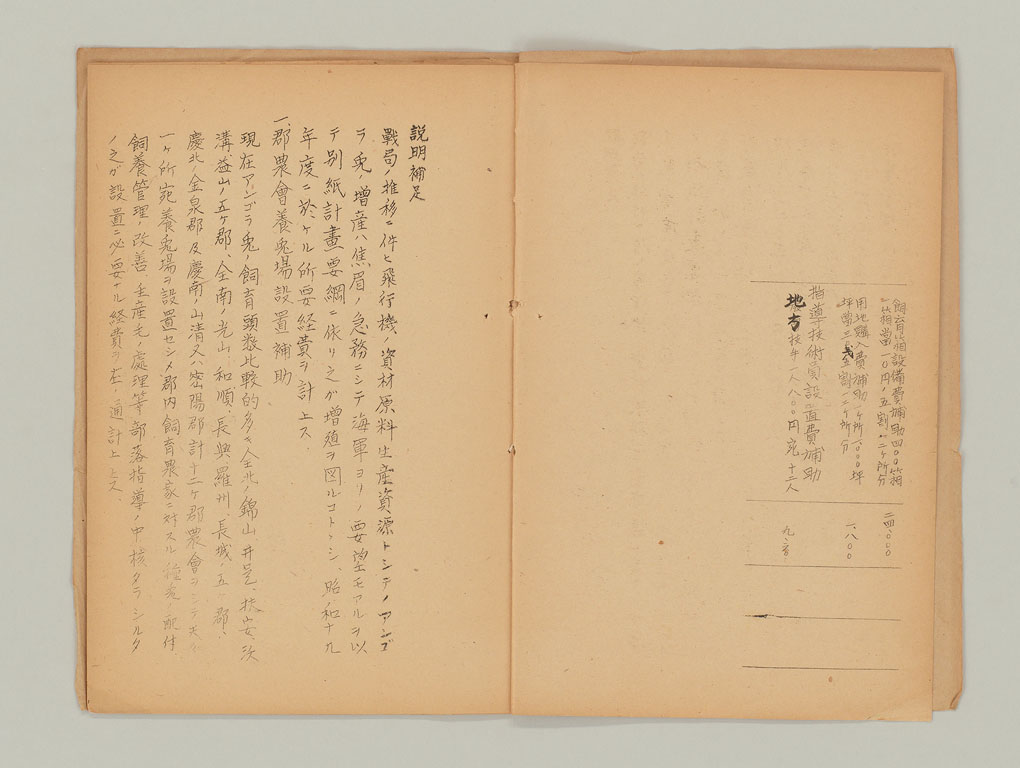 飼育箱設備費補助四〇〇箱
一箱當一〇円ノ五割 十二ケ所分
二四、〇〇〇
用地購入費補助一ケ所一〇〇〇坪
坪當三円五割 十二ケ所分
一、八〇〇
指導技術員設置費補助
地方技手一人八〇〇円宛十二人
九、六〇〇
説明補足
戰局ノ推移ニ伴ヒ飛行機ノ資材原料生産資源トシテノアンゴ
ラ兎ノ増産ハ焦眉ノ急務ニシテ海軍ヨリノ要望モアルヲ以
テ別紙計畫要綱ニ依リ之ガ増殖ヲ図ルコトトシ、昭和十九
年度ニ於ケル所要経費ヲ計上ス
一、郡農會養兎場設置補助
現在アンゴラ兎ノ飼育頭数比較的多キ全北ノ錦山井邑、扶安、沃
溝益山ノ五ケ郡、全南ノ光山、和順、長興羅州、長城ノ五ケ郡、
慶北ノ金泉郡及慶南ノ山清又ハ密陽郡計十二ケ郡農會ヲシテ夫々
一ケ所宛養兎場ヲ設置セシメ郡内飼育農家ニ対スル種兎ノ配付、
飼養管理ノ改善、生産毛ノ處理等部落指導ノ中核タラシルタ
ノ之ガ設置ニ必要ナル経費ヲ左ノ通計上ス